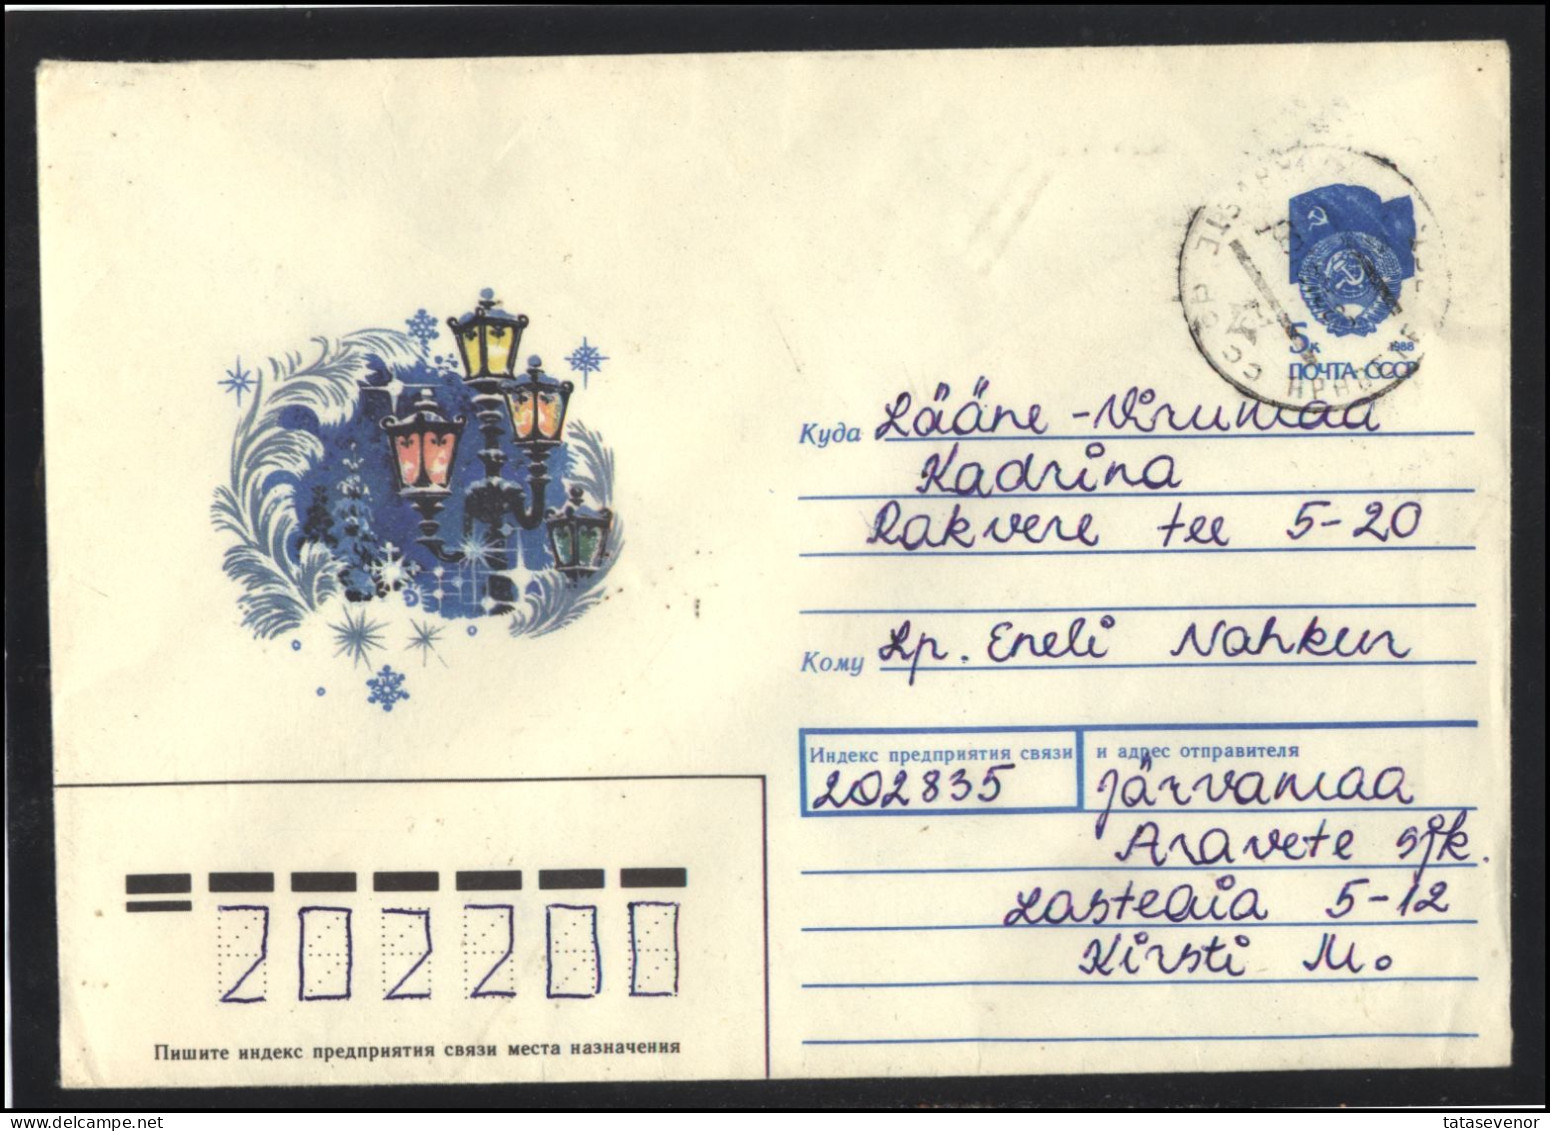 5к 1988
ПОЧТА СССР
Куда Lääne-Virumaa
Kadrina
Rakvere tee 5-20
Кому Lp. Eneli Nahkur
Индекс предприятия связи и адрес отправителя
202835 Järvamaa
Aravete sjk.
Lasteaia 5-12
Kirsti M.
202200
Пишите индекс предприятия связи места назначения
tatasevenor